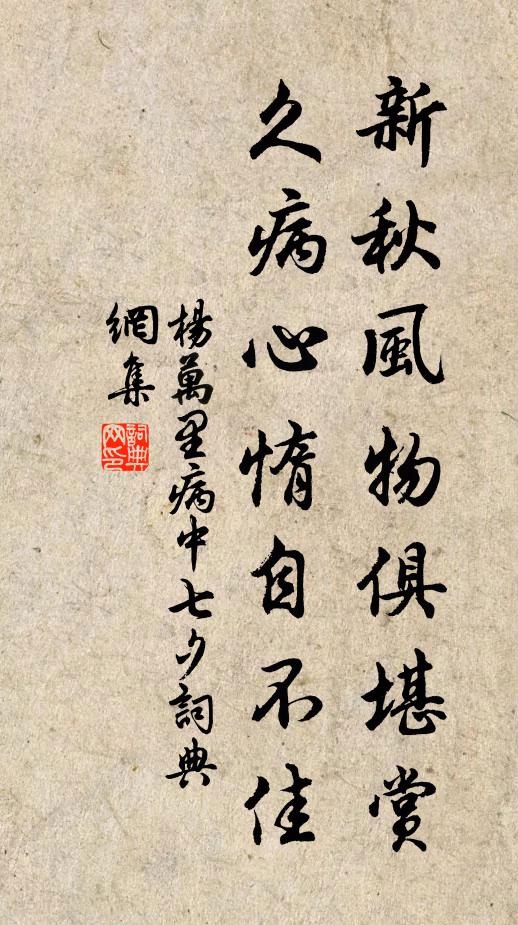 新秋風物俱堪賞
久病心惰自不佳
楊萬里病中七夕詞典
網集
詞典
网印